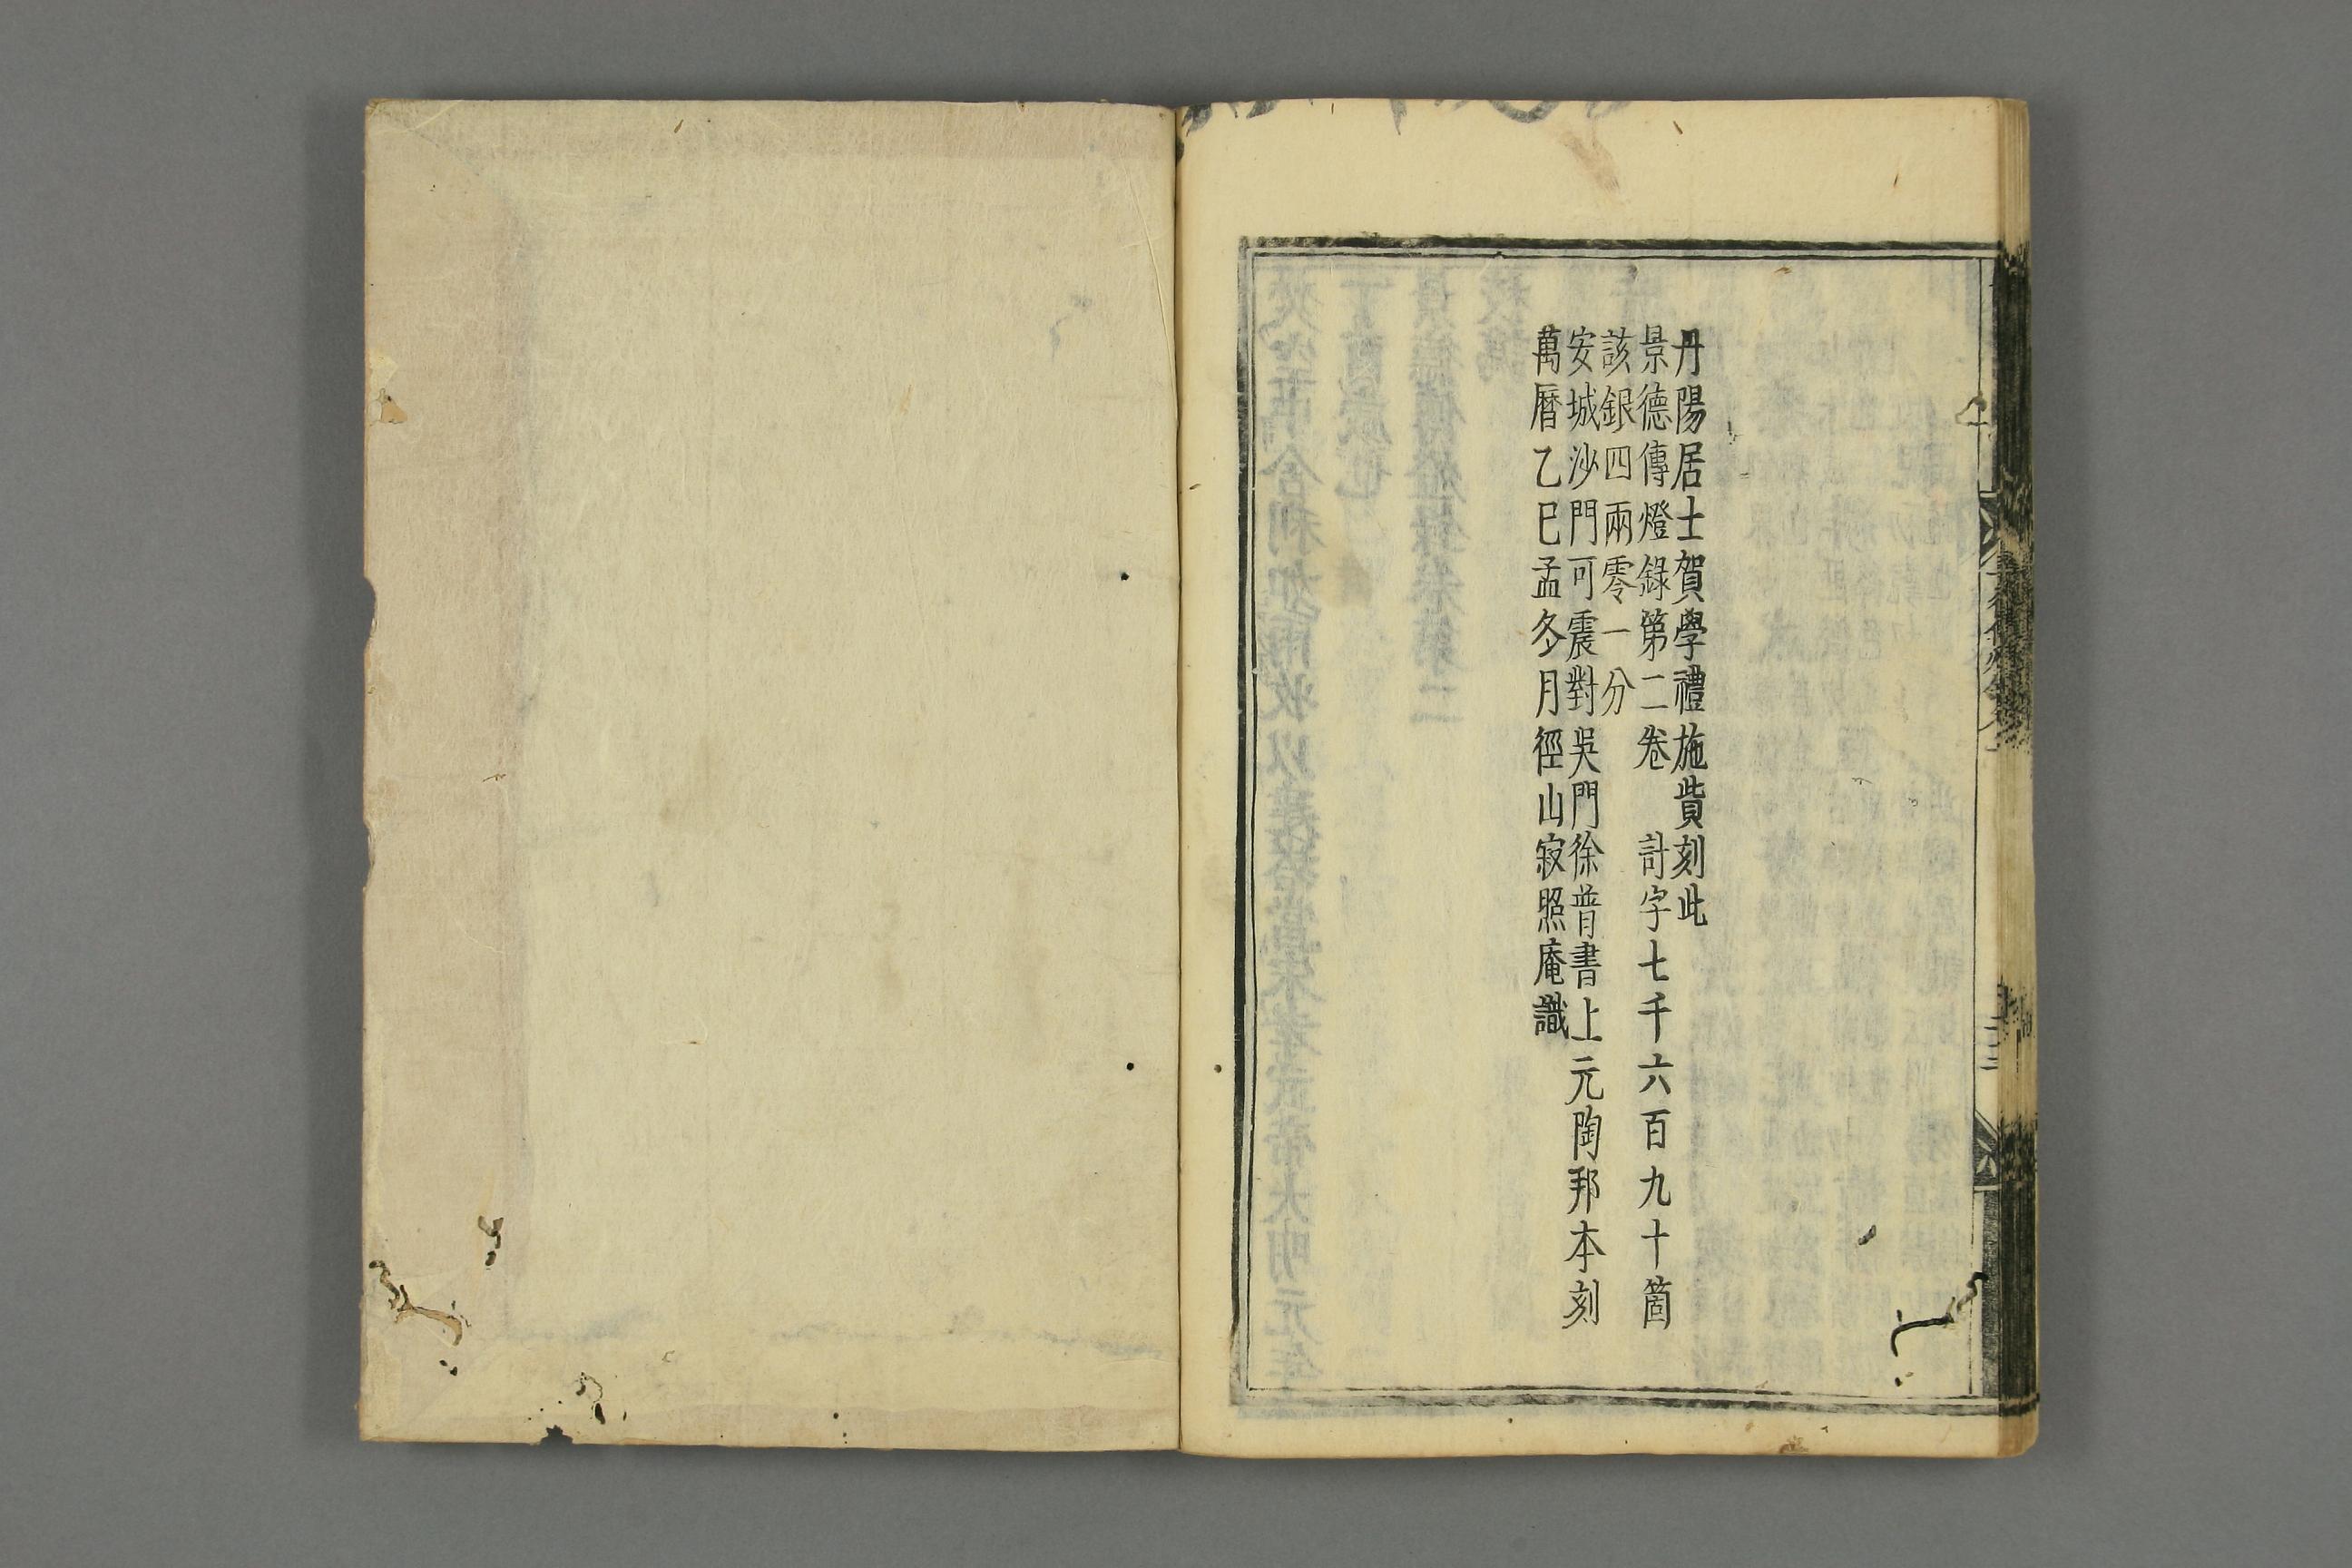 丹陽居士賀學禮施貲刻此
景德傳燈錄第二卷　計字七千六百九十箇
該銀四兩零一分
安城沙門可震對吳門徐普書上元陶邦本刻
萬曆乙巳孟冬月徑山寂照庵識